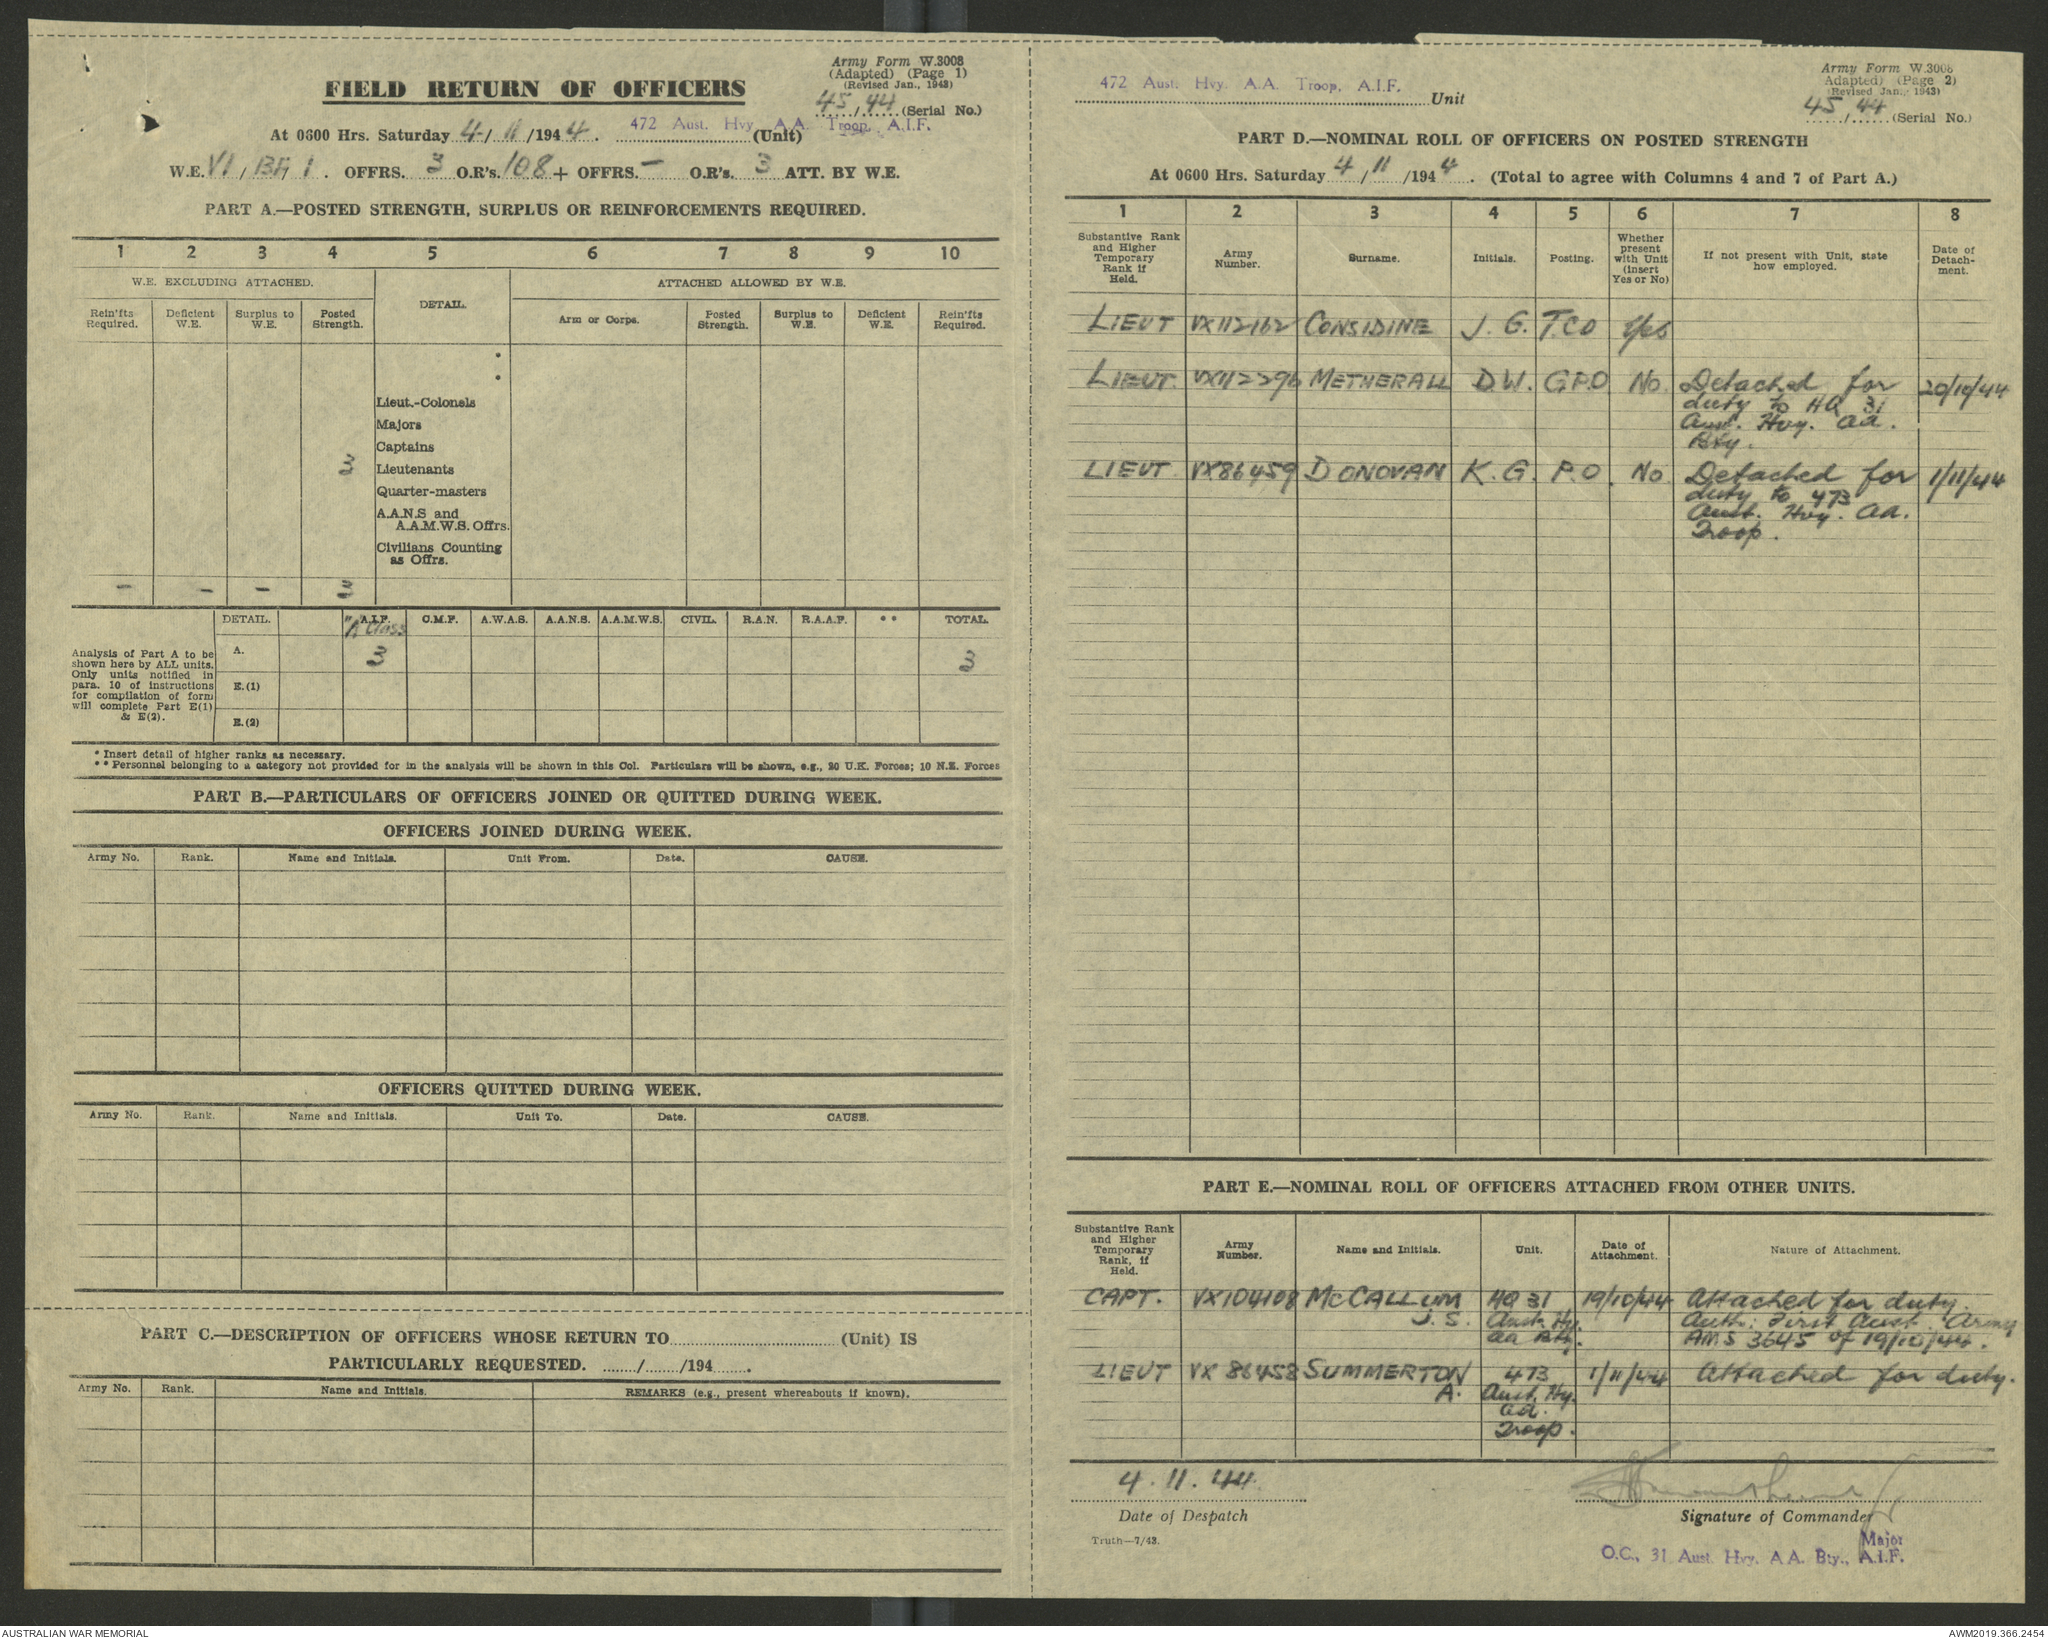 Army Form W.3008
(Adapted) (Page 1)
(Revised Jan., 1943)
FIELD RETURN OF OFFICERS
45/44 (Serial No.)
At 0600 Hrs. Saturday 4/11/1944. 472 Aust. Hvy. A.A. Troop, A.I.F. (Unit)
W.E. VI / / 1. OFFRS. 3 O.R's. 108 + OFFRS. — O.R's. 3 ATT. BY W.E.
PART A.—POSTED STRENGTH, SURPLUS OR REINFORCEMENTS REQUIRED.
1 2 3 4 5 6 7 8 9 10
W.E. EXCLUDING ATTACHED. DETAIL. ATTACHED ALLOWED BY W.E.
Rein'fts Required. Deficient W.E. Surplus to W.E. Posted Strength. Arm or Corps. Posted Strength. Surplus to W.E. Deficient W.E. Rein'fts Required.
*
*
Lieut.-Colonels
Majors
Captains
3 Lieutenants
Quarter-masters
A.A.N.S and
A.A.M.W.S. Offrs.
Civilians Counting
as Offrs.
— — — 3
DETAIL. A.I.F. C.M.F. A.W.A.S. A.A.N.S. A.A.M.W.S. CIVIL. R.A.N. R.A.A.F. ** TOTAL.
"A" Class
Analysis of Part A to be
shown here by ALL units.
Only units notified in
para. 10 of instructions
for compilation of form
will complete Part E(1)
& E(2).
A. 3 3
E.(1)
E.(2)
* Insert detail of higher ranks as necessary.
** Personnel belonging to a category not provided for in the analysis will be shown in this Col. Particulars will be shown, e.g., 20 U.K. Forces; 10 N.E. Forces
PART B.—PARTICULARS OF OFFICERS JOINED OR QUITTED DURING WEEK.
OFFICERS JOINED DURING WEEK.
Army No. Rank. Name and Initials. Unit From. Date. CAUSE.
OFFICERS QUITTED DURING WEEK.
Army No. Rank. Name and Initials. Unit To. Date. CAUSE.
PART C.—DESCRIPTION OF OFFICERS WHOSE RETURN TO (Unit) IS
PARTICULARLY REQUESTED. / /194 .
Army No. Rank. Name and Initials. REMARKS (e.g., present whereabouts if known).
472 Aust. Hvy. A.A. Troop, A.I.F. Unit
Army Form W.3008
Adapted) (Page 2)
(Revised Jan., 1943)
45/44 (Serial No.)
PART D.—NOMINAL ROLL OF OFFICERS ON POSTED STRENGTH
At 0600 Hrs. Saturday 4/11/1944. (Total to agree with Columns 4 and 7 of Part A.)
1 2 3 4 5 6 7 8
Substantive Rank and Higher Temporary Rank if Held. Army Number. Surname. Initials. Posting. Whether present with Unit (insert Yes or No) If not present with Unit, state how employed. Date of Detachment.
LIEUT VX112162 CONSIDINE J. G. T.C.O Yes
LIEUT. VX112296 METHERALL D.W. G.P.O No. Detached for 20/10/44
duty to HQ 31
Aust. Hvy. AA.
Bty.
LIEUT. VX86459 DONOVAN K. G. P.O. No Detached for 1/11/44
duty to 473
Aust. Hvy. AA.
Troop.
PART E.—NOMINAL ROLL OF OFFICERS ATTACHED FROM OTHER UNITS.
Substantive Rank and Higher Temporary Rank, if Held. Army Number. Name and Initials. Unit. Date of Attachment. Nature of Attachment.
CAPT. VX104108 McCALLUM HQ 31 19/10/44 Attached for duty.
J. S. Aust. Hy. Auth: First Aust. Army
AA Bty. AMS 3645 of 19/10/44.
LIEUT VX 86458 SUMMERTON 473 1/11/44 Attached for duty.
A. Aust. Hy.
AA.
Troop.
4.11.44.
Date of Despatch
Signature of Commander
Major
O.C., 31 Aust. Hvy. A.A. Bty., A.I.F.
Truth—7/43.
AUSTRALIAN WAR MEMORIAL
AWM2019.366.2454